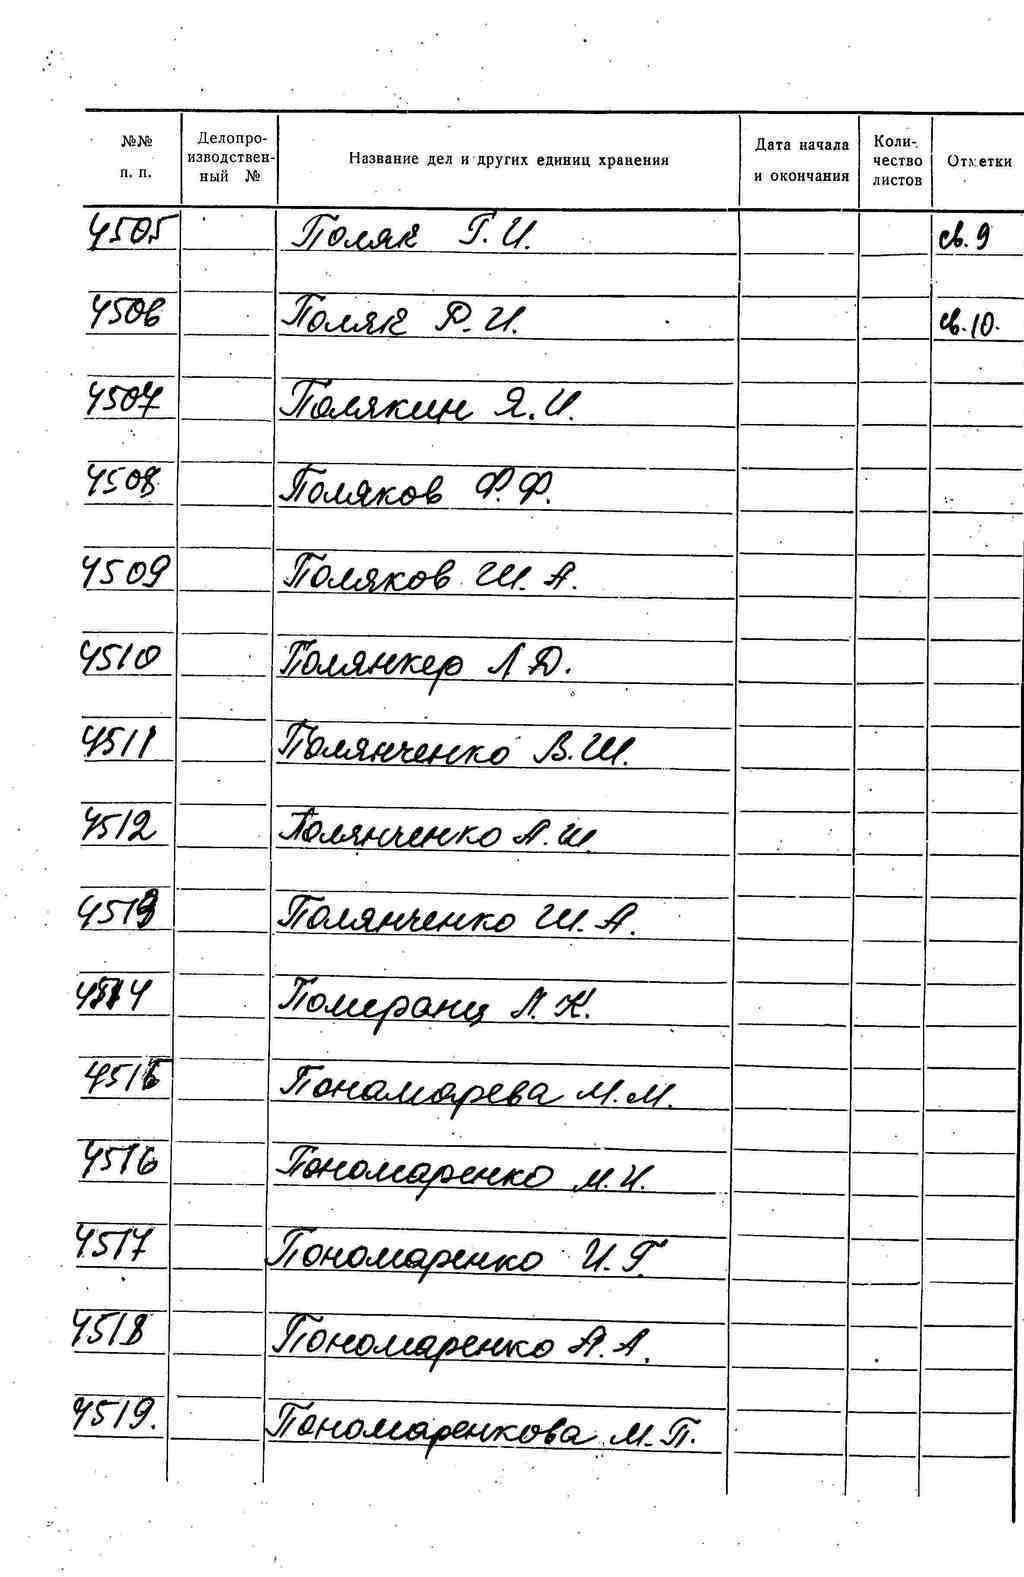 №№ п. п. Делопроизводственный № Название дел и других единиц хранения Дата начала и окончания Количество листов Отметки
4505 Поляк Г. И. св. 9
4506 Поляк Р. И. св. 10.
4507 Полякин Я. И.
4508 Поляков Ф. Ф.
4509 Поляков Ш. А.
4510 Полянкер Л Д.
4511 Полянченко В. Ш.
4512 Полянченко А. Ш.
4513 Полянченко Ш. А.
4514 Померанц Л. К.
4515 Пономарева М. М.
4516 Пономаренко М. И.
4517 Пономаренко И. Г.
4518 Пономаренко А. А.
4519. Пономаренкова М. П.